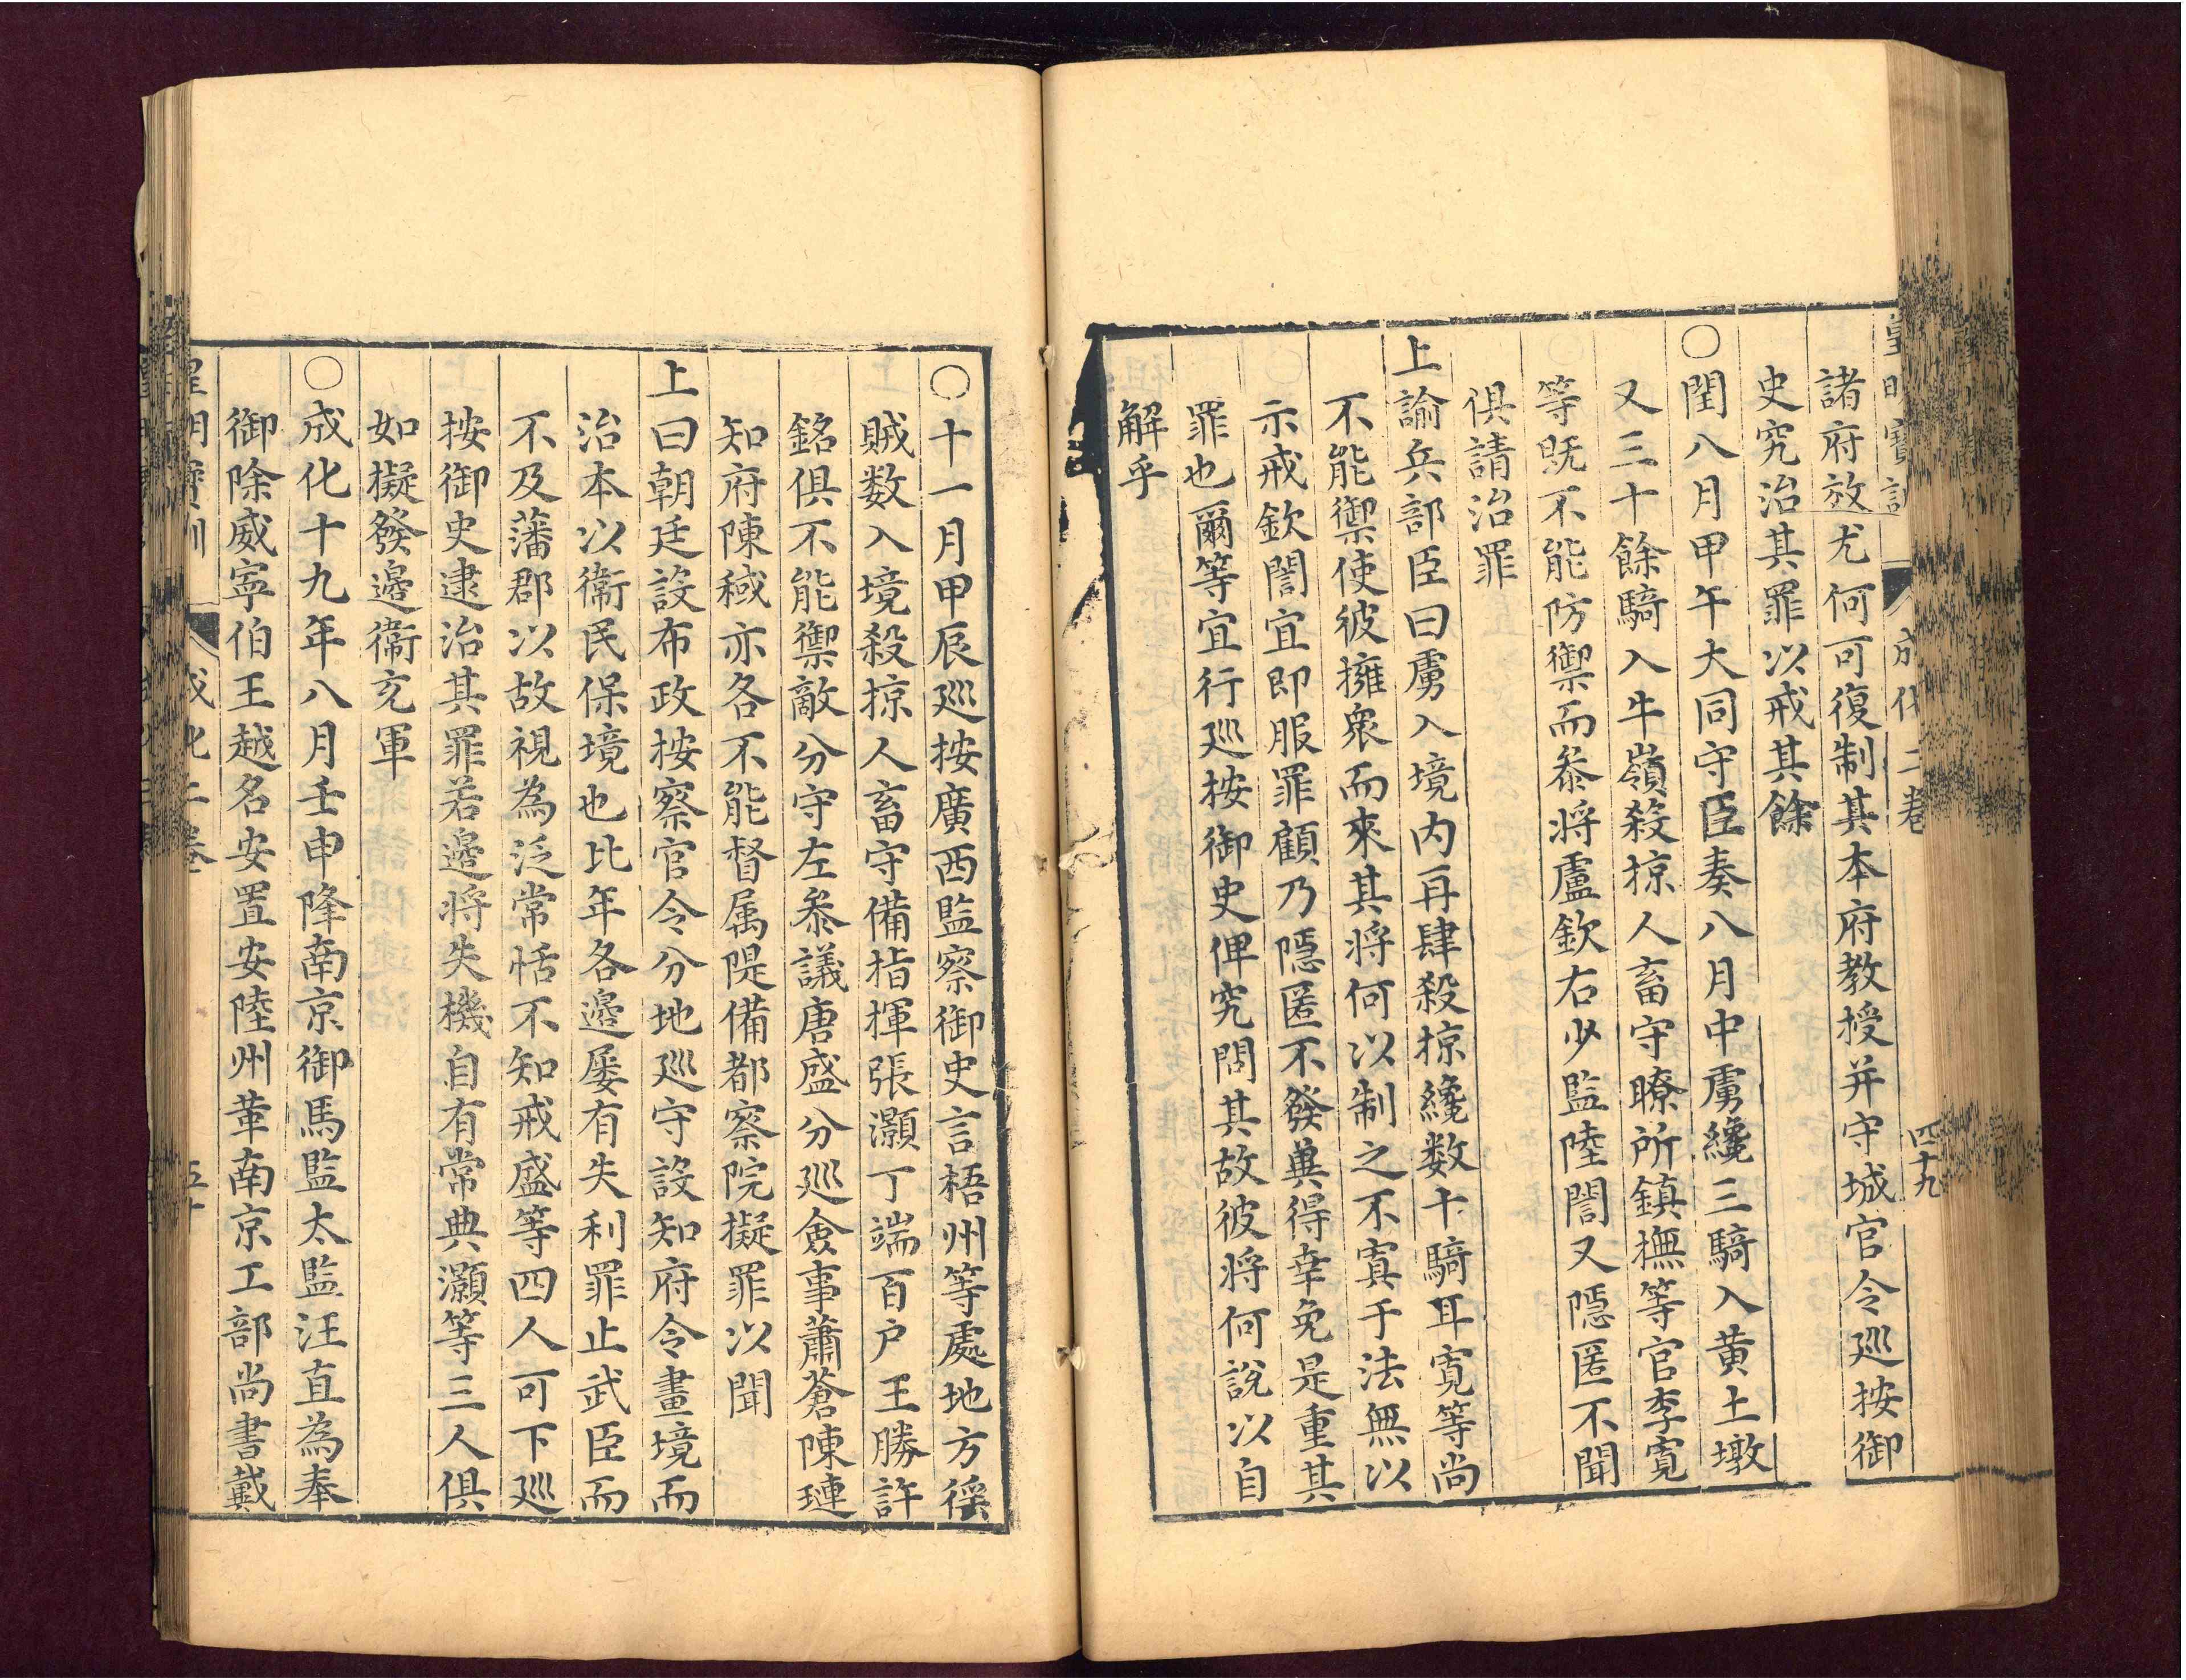 皇明寶訓 成化二卷 四十九
諸府效尤何可復制其本府教授并守城官令巡按御
史究治其罪以戒其餘
○閏八月甲午大同守臣奏八月中虜纔三騎入黃土墩
又三十餘騎入牛嶺殺掠人畜守瞭所鎮撫等官李寬
等既不能防禦而叅將盧欽右少監陸誾又隱匿不聞
俱請治罪
上諭兵部臣曰虜入境内再肆殺掠纔数十騎耳寬等尚
不能禦使彼擁衆而來其將何以制之不寘于法無以
示戒欽誾宜即服罪顧乃隱匿不發兾得幸免是重其
罪也爾等宜行巡按御史俾究問其故彼將何說以自
解乎
○十一月甲辰巡按廣西監察御史言梧州等處地方徭
賊数入境殺掠人畜守備指揮張灝丁端百户王勝許
銘俱不能禦敵分守左叅議唐盛分巡僉事蕭蒼陳璉
知府陳稢亦各不能督属隄備都察院擬罪以聞
上曰朝廷設布政按察官令分地巡守設知府令畫境而
治本以衞民保境也比年各邊屡有失利罪止武臣而
不及藩郡以故視為泛常恬不知戒盛等四人可下巡
按御史逮治其罪若邊將失機自有常典灝等三人俱
如擬發邊衞充軍
○成化十九年八月壬申降南京御馬監太監汪直為奉
御除威寜伯王越名安置安陸州革南京工部尚書戴
皇明寶訓 成化二卷 五十